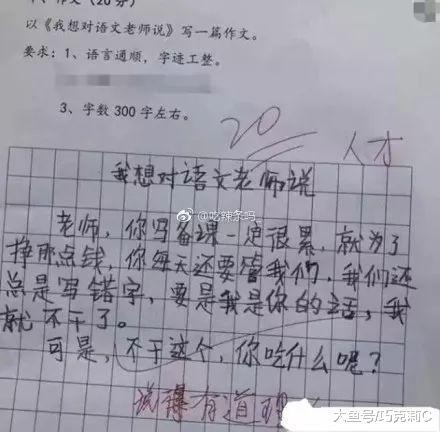 作文（20分）
以《我想对语文老师说》写一篇作文。
要求：1、语言通顺，字迹工整。
3、字数 300 字左右。
20
人才
我想对语文老师说
@吃辣条吗
老师，你写备课一定很累，就为了
挣那点钱，你每天还要管我们，我们还
总是写错字，要是我是你的话，我
就不干了。
可是，不干这个，你吃什么呢？
说得有道理
大鱼号/巧克莉C